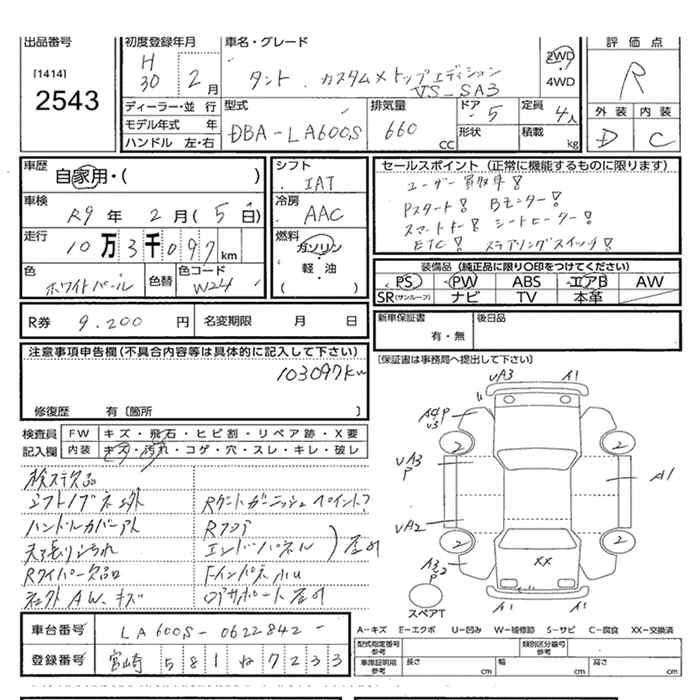 出品番号
[1414]
2543
初度登録年月
H
30 2 月
車名・グレード
タント カスタムXトップエディション
VS-SA3
2WD
4WD
評価点
R
外装 内装
D C
ディーラー・並行
モデル年式 年
ハンドル 左・右
型式
DBA-LA600S
排気量
660 CC
ドア 5
形状
定員 4人
積載 kg
車歴
自家用・( )
車検
R9 年 2 月 (5 日)
走行
10 万 3 千 097 km
色
ホワイトパール
色替
色コード
W24
シフト
IAT
冷房
AAC
燃料
ガソリン
軽・油
( )
セールスポイント (正常に機能するものに限ります)
ユーザー買取車!
Pスタート! Bモニター!
スマートキー! シートヒーター!
ETC! ステアリングスイッチ!
装備品 (純正品に限り〇印をつけてください)
PS PW ABS エアB AW
SR(サンルーフ) ナビ TV 本革
R券 9.200 円
名変期限 月 日
新車保証書
有・無
後日品
[保証書は事務局へ提出して下さい]
注意事項申告欄(不具合内容等は具体的に記入して下さい)
103097km
修復歴 有〔箇所 〕
検査員
記入欄
FW キズ・飛石・ヒビ割・リペア跡・X要
内装 キズ・汚れ・コゲ・穴・スレ・キレ・破レ
シフトノブ
ハンドルカバー
Rワイパー欠品
AW キズ
Rゲートガーニッシュ ペイント?
Rフロア
エンドパネル
Fインパネ
uA3 A1
u
A4 P
uA3
P
A1
uA2
A3
P
2
2
2
2
XX
A1 A1
スペアT
A-キズ E-エクボ U-凹み W-補修跡 S-サビ C-腐食 XX-交換済
車台番号 LA600S-0622842
登録番号 宮崎 581 ね 7233
型式指定番号
参考
類別区分番号
参考
車庫証明用
参考
長さ cm
幅 cm
高さ cm